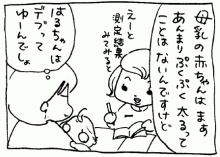 母乳の赤ちゃんはまぁ
あんまりぷくぷく太るって
ことはないんですけど
えーと
測定結果
みてみると
はるちゃんは
デブって
ゆーんでしょ